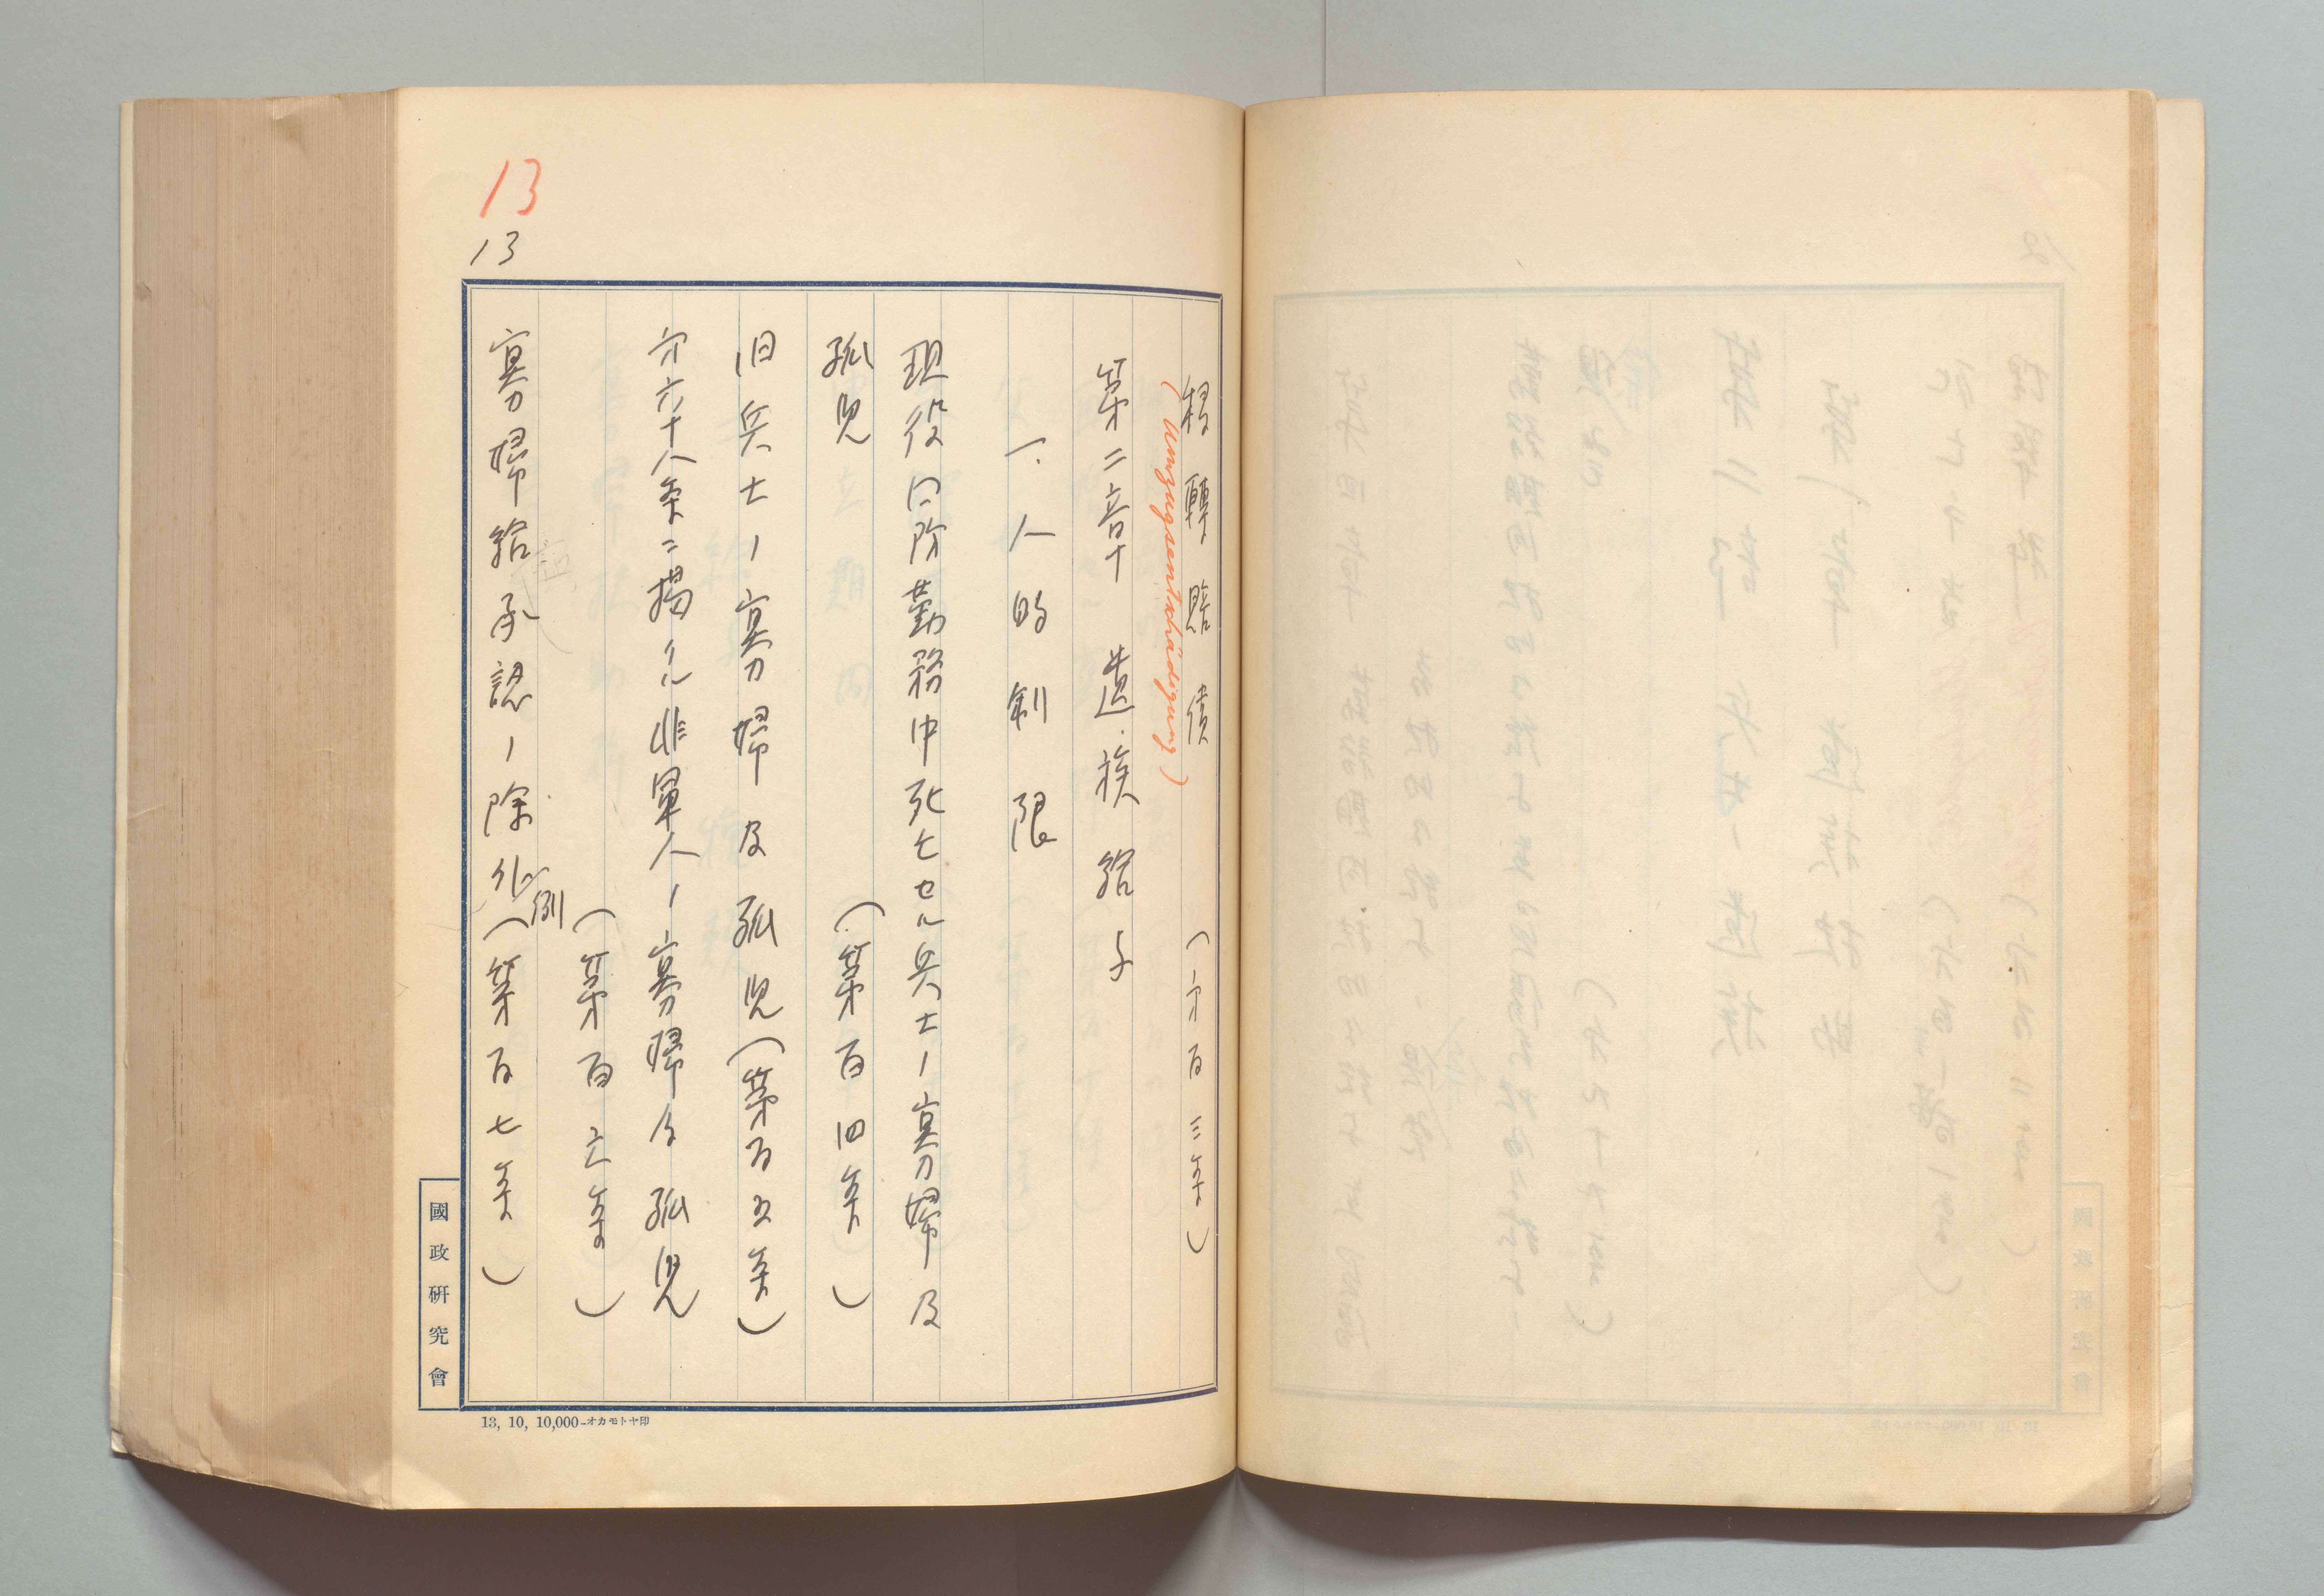 13
13
移轉賠償　（㐧百三条）
（Umzugsentschädigung）
第二章　遺族給与
一．人的制限
現役同階勤務中死亡セル兵士ノ寡婦及
孤児　（第百四条）
旧兵士ノ寡婦及孤児（第百五条）
㐧六十八条ニ掲クル非軍人ノ寡婦及孤児
（第百六条）
寡婦給承認ノ除外例（第百七条）
國政研究會
13, 10, 10,000-オカモトヤ印